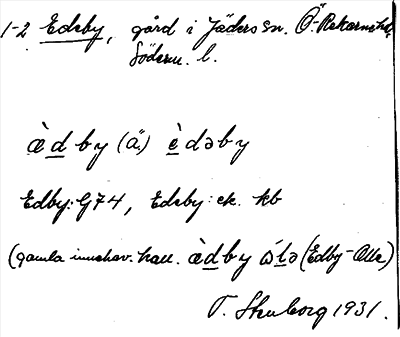 1-2 Edeby, gård i Jäders sn. Ö. Rekarne hd,
Söderm. l.
æ̀dby (ä.) èdəby
Edby: G74, Edeby: ek. kb
(gamla innehav. kall. æ̀dby (Edby-Olle)
T. Stenborg 1931.